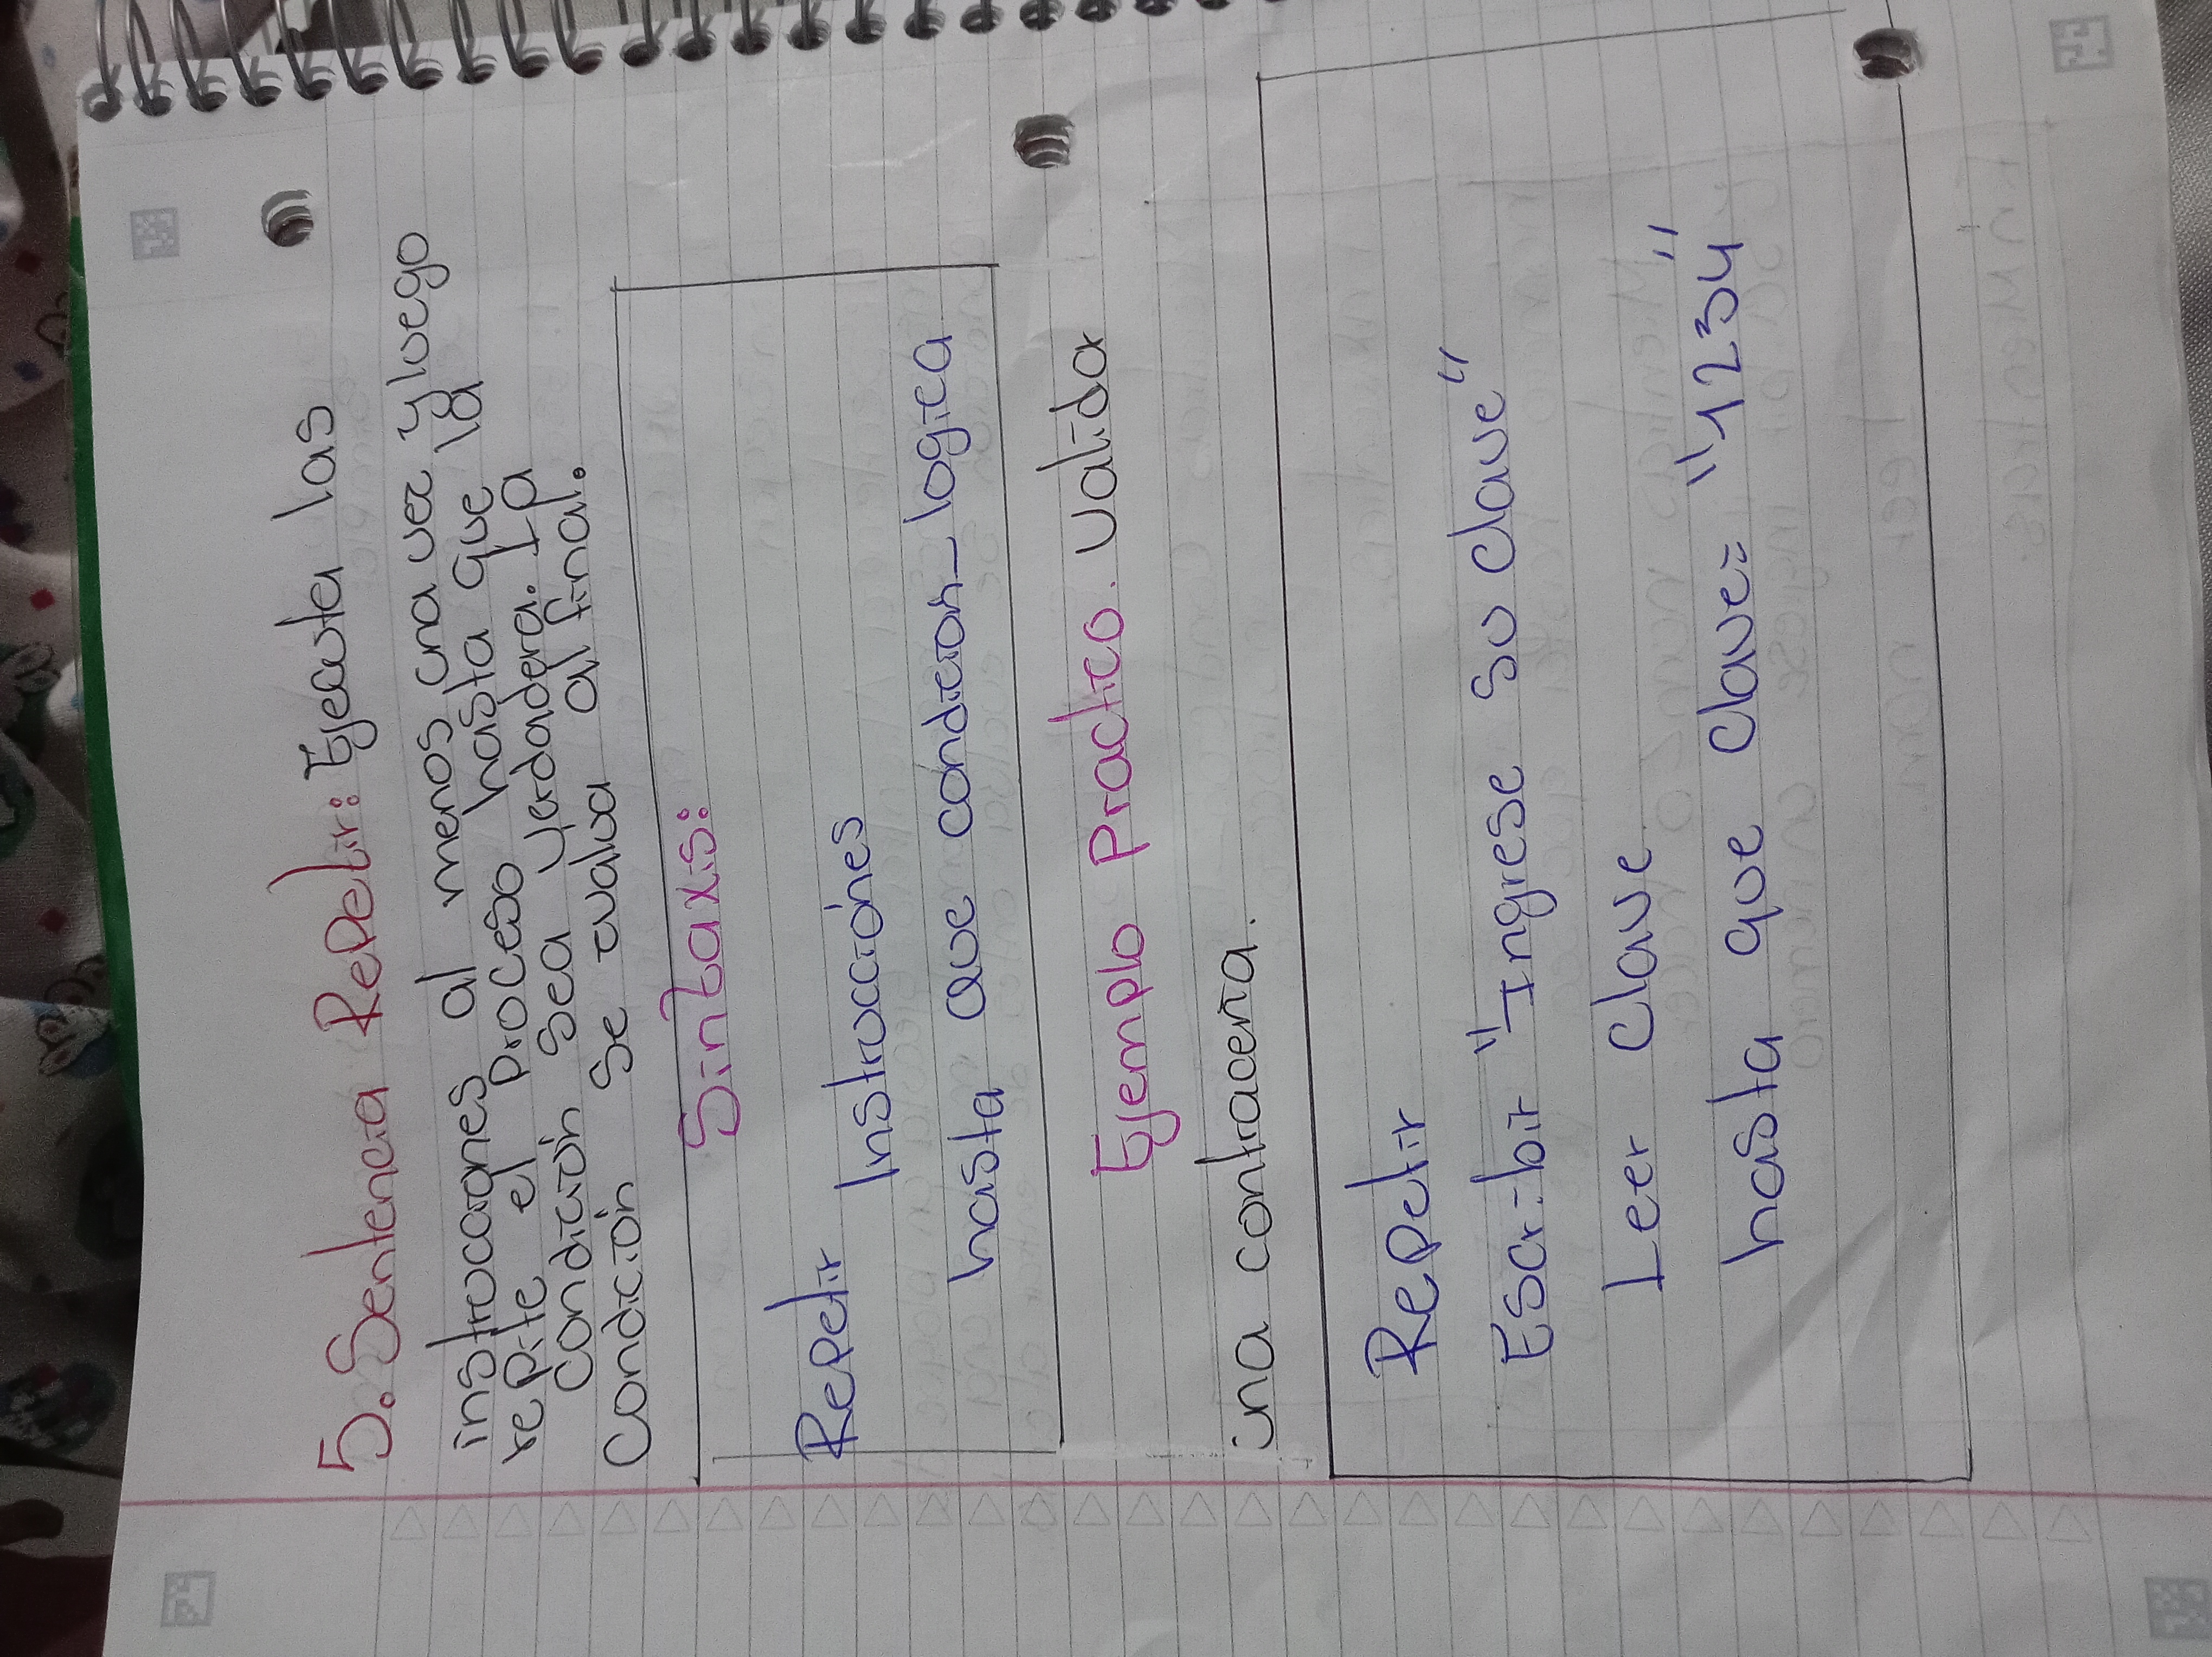 5. Sentencia Repetir: Ejecuta las
instrucciones al menos una vez y luego
repite el proceso hasta que la
condición sea verdadera. La
condición se evalua al final.
Sintaxis:
Repetir
Instrucciónes
hasta que condicion_logica
Ejemplo Practico. valida
una contraceña.
Repetir
Escribir "Ingrese su clave"
Leer clave
hasta que clave= "1234"